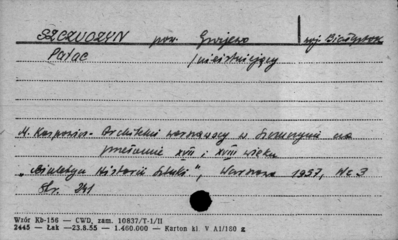 SZCZUCZYN pow. Grajewo woj. Białystok
Pałac /nieistniejący
M. Karpowicz - Architekci warszawscy w Szczuczynie na
przełomie XVII i XVIII wieku
„Biuletyn Historii Sztuki", Warszawa 1957, Nr. 3
Str. 341
Wzór Kb-156 — CWD, zam. 10837/T-1/II
2445 — Łak —23.8.55 — 1.460.000 — Karton kl. V A1/180 g